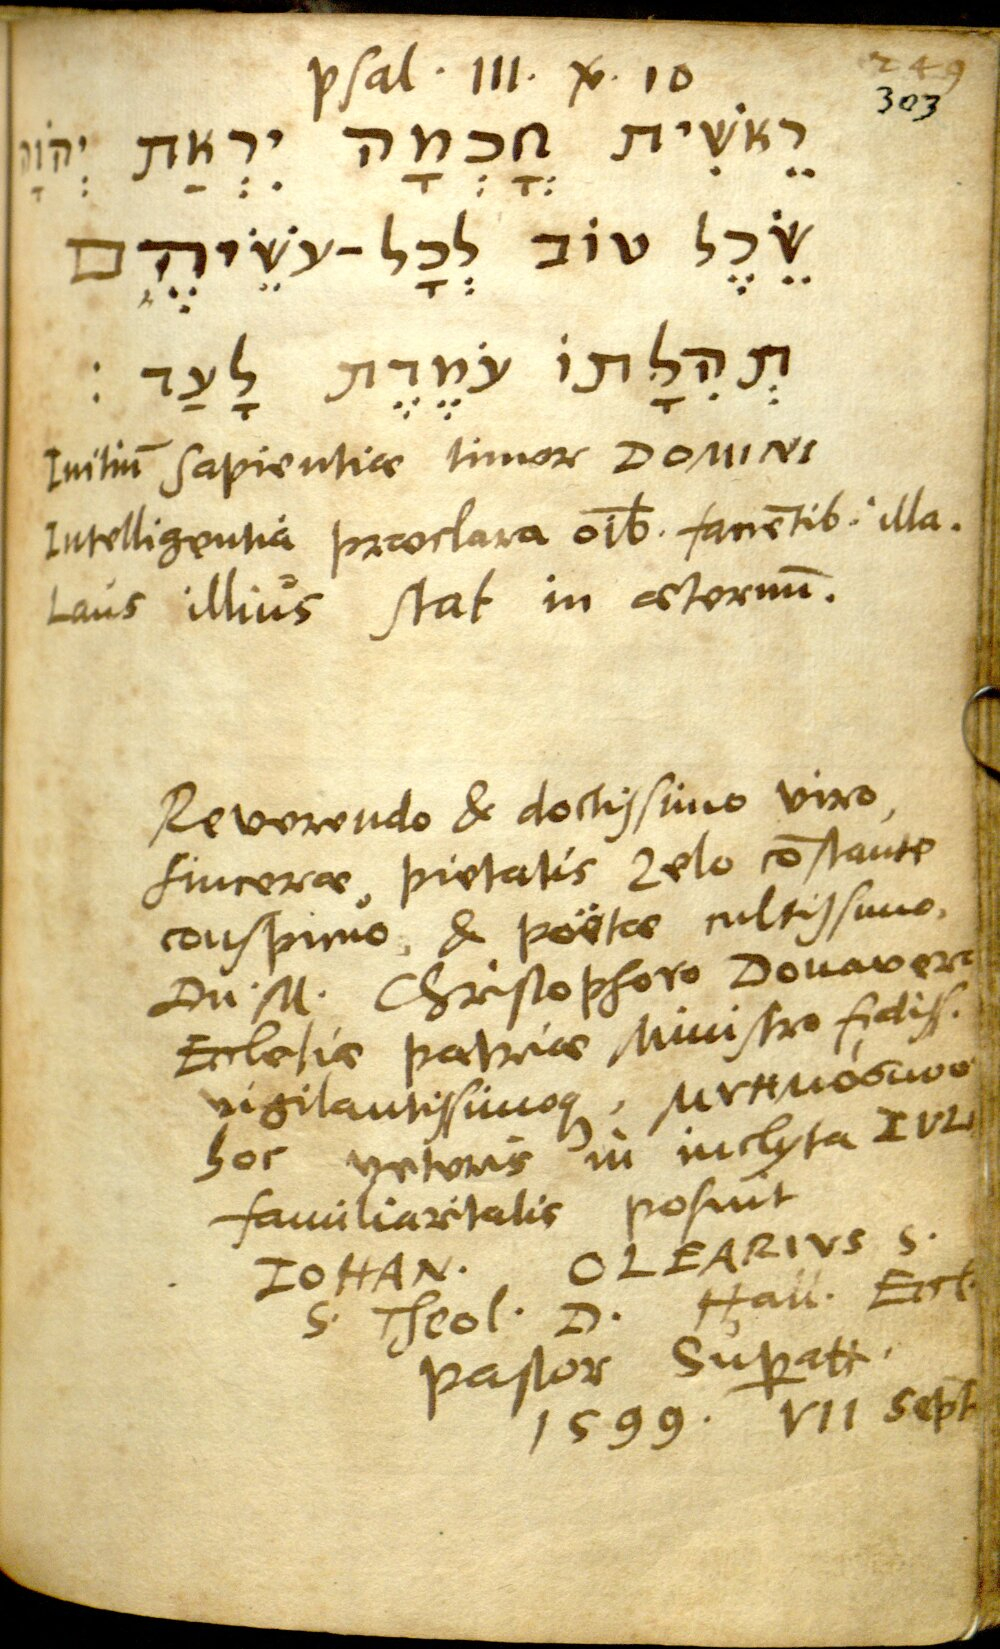 psal. 111. v. 10
249
303
רֵאשִׁית חָכְמָה יִרְאַת יְהוָֹה
שֵׂכֶל טוֹב לְכָל-עֹשֵׂיהֶם
תְּהִלָּתוֹ עֹמֶדֶת לָעַד :
Initiũ sapientiæ timor DOMINI
Intelligentia præclara oĩb. faciẽtib. illa.
Laus illius stat in æternũ.
Reverendo & doctissimo viro,
sinceræ pietatis zelo cõstante
conspicuo, & poëtæ cultissimo,
Dn. M. Christophoro Donavero
Ecclesiæ patriæ Ministro fidiss.
vigilantissimoq,
hoc veteris in inclyta IULIA
familiaritatis posuit
IOHAN. OLEARIVS S.
S. Theol. D. Hall. Eccl.
pastor Supatt.
1599. VII Sept